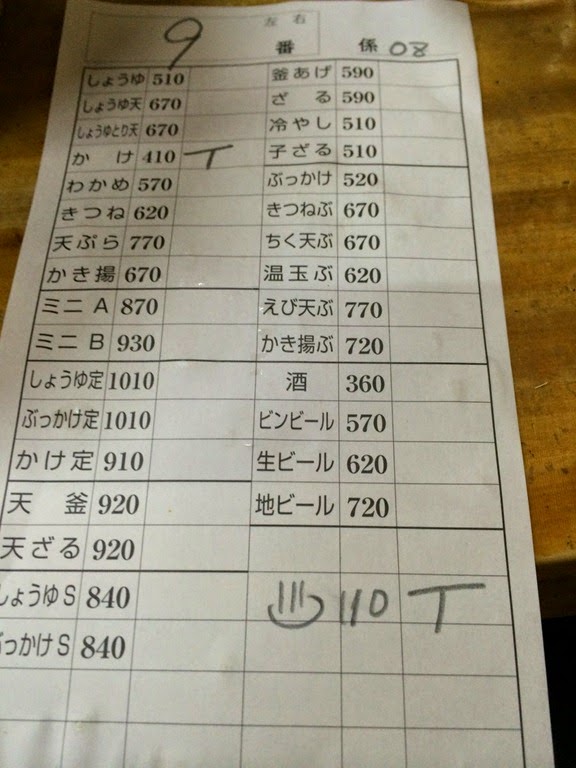 左 右
9 番 係 08
しょうゆ 510 釜あげ 590
しょうゆ天 670 ざる 590
しょうゆとり天 670 冷やし 510
かけ 410 T 子ざる 510
わかめ 570 ぶっかけ 520
きつね 620 きつねぶ 670
天ぷら 770 ちく天ぶ 670
かき揚 670 温玉ぶ 620
ミニA 870 えび天ぶ 770
ミニB 930 かき揚ぶ 720
しょうゆ定 1010 酒 360
ぶっかけ定 1010 ビンビール 570
かけ定 910 生ビール 620
天釜 920 地ビール 720
天ざる 920
しょうゆS 840 110 T
ぶっかけS 840